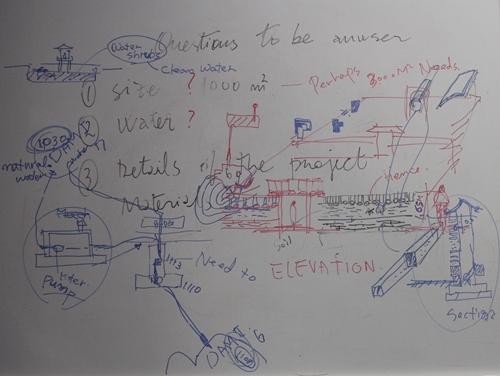 Questions to be answer
Water
shrubs
Clean water
① size ? 1000 m² — Perhaps 3000 m² Needs
② Water ?
1030
DAM
natural
water
③ Details of the project
Material
fence
soil
Need to ELEVATION
Water
Pump
1113
1110
DAM
1100
Section